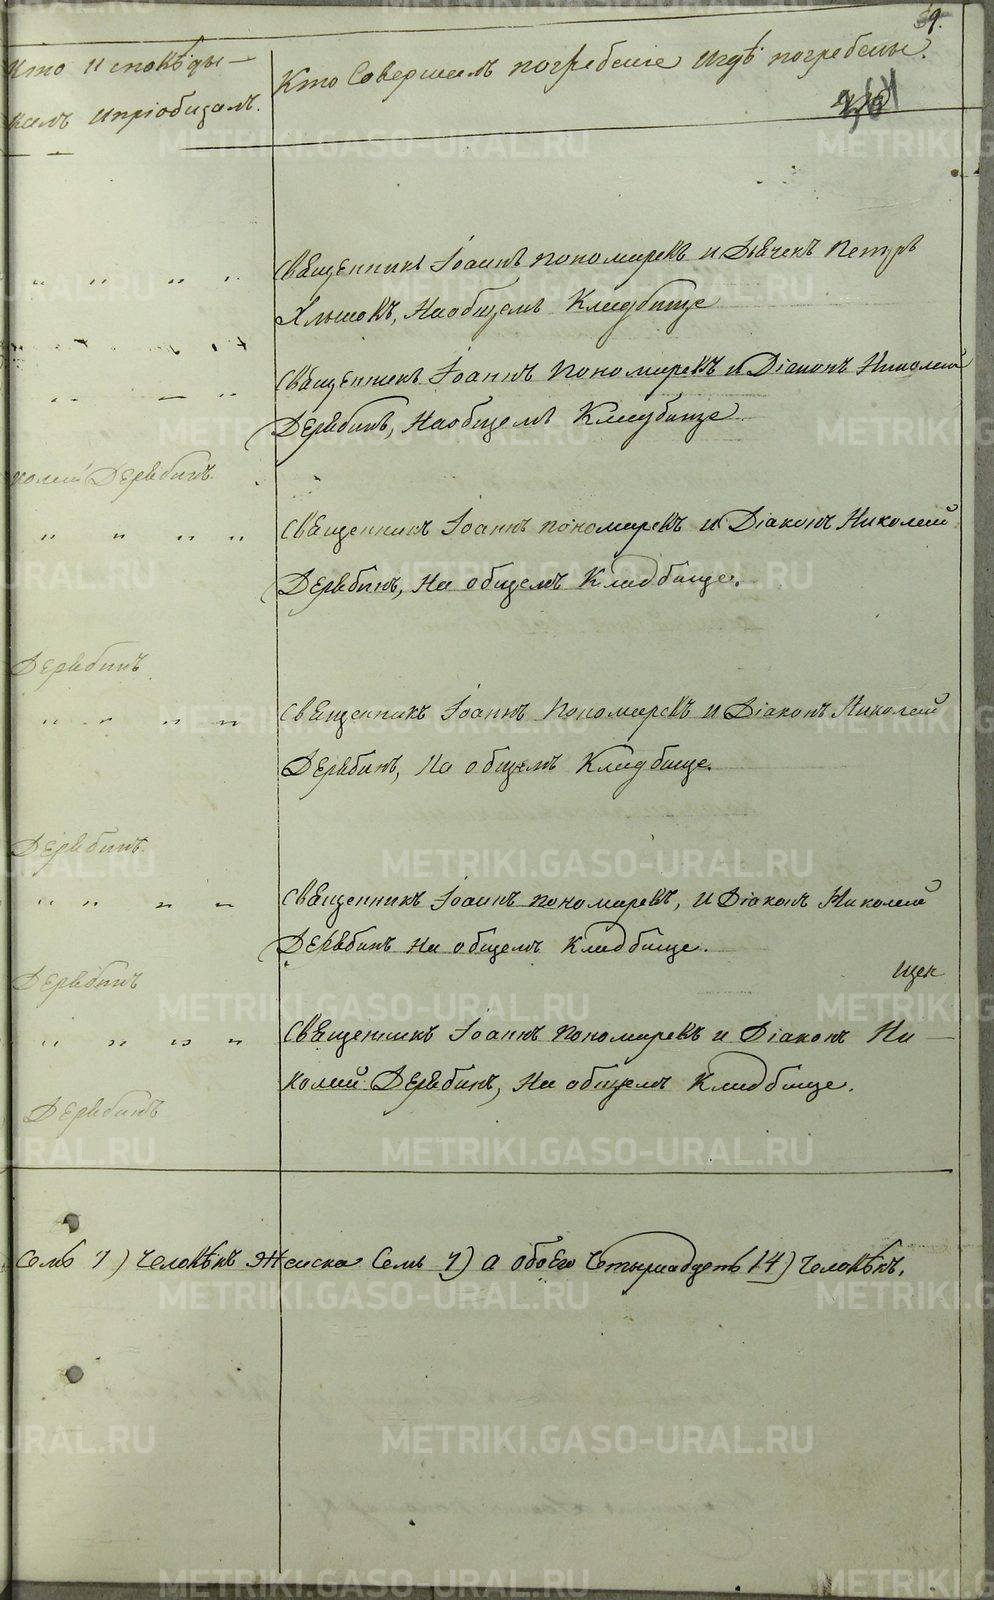 9.
Кто Исповѣды-
валъ ипріобщалъ.
Кто Совершалъ погребеніе игдѣ погребены.
Священникъ Іоаннъ пономаревъ и Дьячекъ Петръ
Хлызовъ, Наобщемъ Кладбище
Священникъ Іоаннъ Пономаревъ и Діаконъ Николай
Дерябинъ, Наобщемъ Кладбище
колай Дерябинъ.
Священникъ Іоаннъ пономаревъ и Діаконъ Николай
Дерябинъ, На общемъ Кладбище.
Дерябинъ
Священникъ Іоаннъ Пономаревъ и Діаконъ Николай
Дерябинъ, На общемъ Кладбище.
Дерябинъ.
Священникъ Іоаннъ пономаревъ, и Діаконъ Николай
Дерябинъ на общемъ Кладбище.
Дерябинъ
Священникъ Іоаннъ Пономаревъ и Діаконъ Ни-
колай Дерябинъ, На общемъ Кладбище.
Дерябинъ
Семь 7) человѣкъ Женска Семь 7) а обоего Четырнадцеть 14) человѣкъ.
METRIKI.GASO-URAL.RU